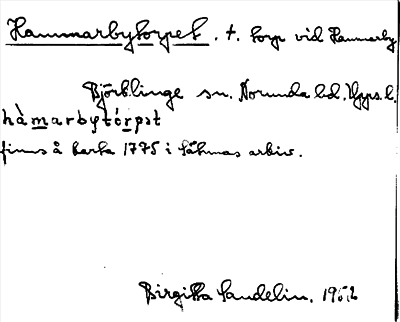 Hammarbytorpet . t. torp vid Hammarby
Björklinge sn. Norunda hd. Upps. l.
hàmarbytórpet
finns å karta 1775 i Sätunas arkiv.
Birgitta Sandelin. 1952